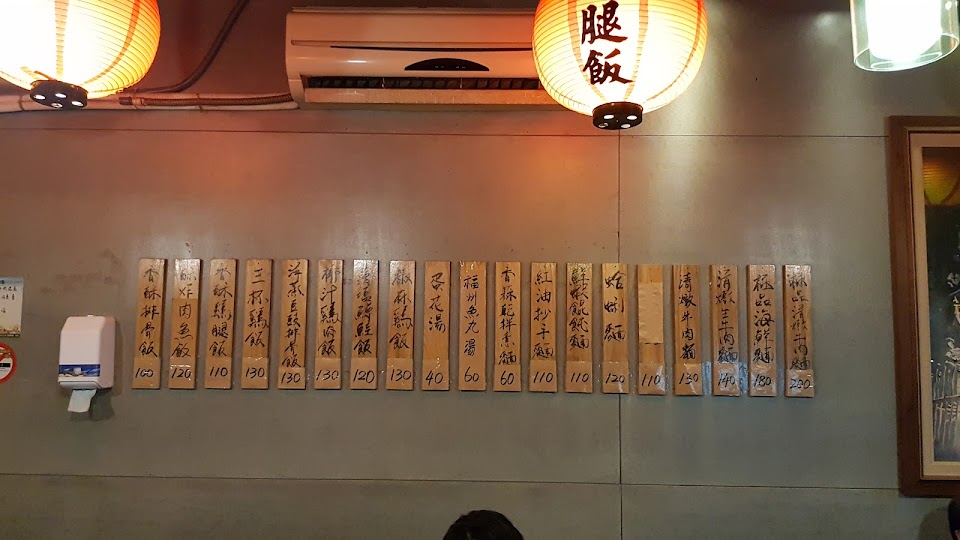 腿飯
香酥排骨飯 100
酥炸肉魚飯 120
香酥鷄腿飯 110
三杯鷄飯 130
130
椰汁鷄肉飯 130
飯 120
椒麻鷄飯 130
蛋花湯 40
福州魚丸湯 60
香酥乾拌素麵 60
紅油抄手麵 110
鮮蝦餛飩麵 110
蛤蜊麵 120
110
清燉牛肉麵 130
清燉生牛肉麵 140
極品海鮮麵 180
極品清燉牛肉麵 200